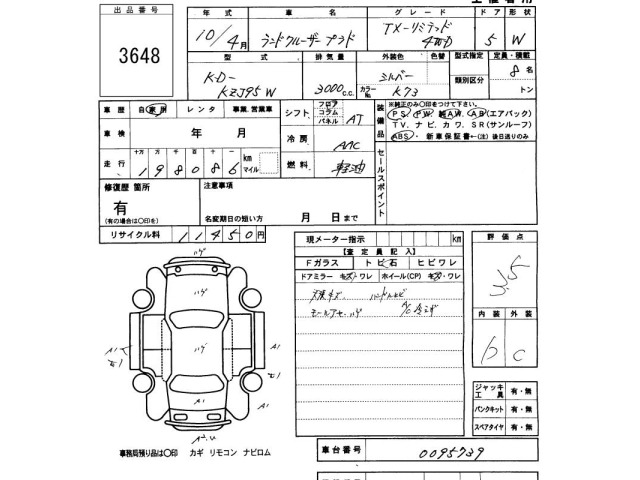 出品番号
3648
年式 車名 グレード ドア 形状
10/4月 ランドクルーザープラド TX-リミテッド 4WD 5 W
型式 排気量 外装色 色替 型式指定 定員・積載
KD-KZJ95W 3000c.c. シルバー カラーNo. K73 類別区分 8名 トン
車歴 自家用 レンタ 事業.営業車
シフト フロア コラム パネル AT
装備品
※純正のみ〇印をつけて下さい。
PS. PW. 純AW. AB(エアバック)
TV. ナビ. カワ. SR(サンルーフ)
ABS・新車保証書←(注)後日送りのみ
車検 年 月
冷房 AAC
セールスポイント
走行 十万 万 千 百 十 198086 km マイル
燃料 軽油
修復歴 箇所
有
(有の場合は〇印を)
注意事項
名変期日の短い方 月 日まで
リサイクル料 11450円
現メーター指示 km
【査定員記入】
Fガラス トビ石 ヒビワレ
ドアミラー キズ・ワレ ホイール(CP) キズ・ワレ
評価点
3.5
内装 外装
b c
ハゲ
ハゲ
ハゲ
A1
A1
A1
ジャッキ 工具 有・無
パンクキット 有・無
スペアタイヤ 有・無
車台番号 0095739
事務局預り品は〇印 カギ リモコン ナビロム